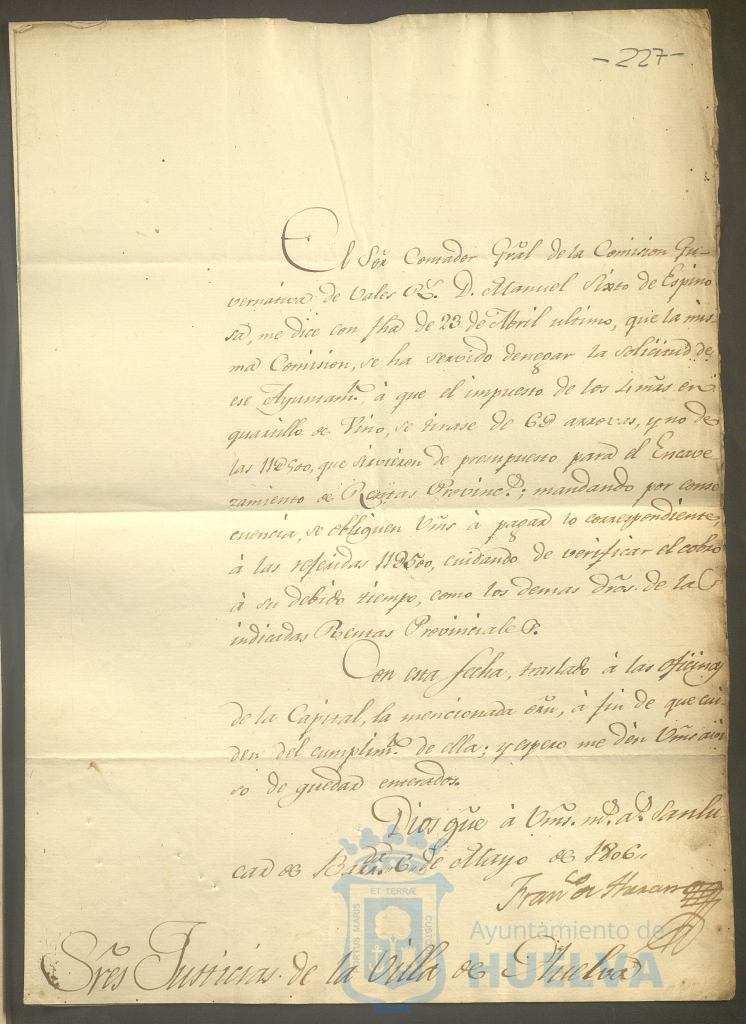 -227-
El Sõr Contador Grãl de la Comision Gu-
vernativa de Vales Rs. D. Manuel Sixto de Espino
sa, me dice con fha de 23 de Abril ultimo, que la mis-
ma Comision, se ha servido denegar la solicitud de
ese Ayuntamto. à que el impuesto de los 4 mrs en
quartillo de Vino, se tirase de 6D arrovas, y no de
las 11D500, que sirvieron de presupuesto para el Encave-
zamiento de Rentas Provincs.; mandando por conse
cuencia, se obliguen Vms à pagar lo correspondiente,
à las referidas 11D500, cuidando de verificar el cobro
à su debido tiempo, como los demas dros. de las
indicadas Rentas Provinciales.
Con esta fecha, traslado à las oficinas
de la Capital, la mencionada orn, à fin de que cui-
den del cumplimto. de ella; y espero me dèn Vms avi
so de quedar enterados.
Dios gũe à Vms. ms. as. Sanlu
car de Barrda. 6 de Mayo de 1806.
Franco de
Sres Justicias de la Villa de Huelva
PORTUS MARIS ET TERRÆ CUSTODIA
Ayuntamiento de
HUELVA